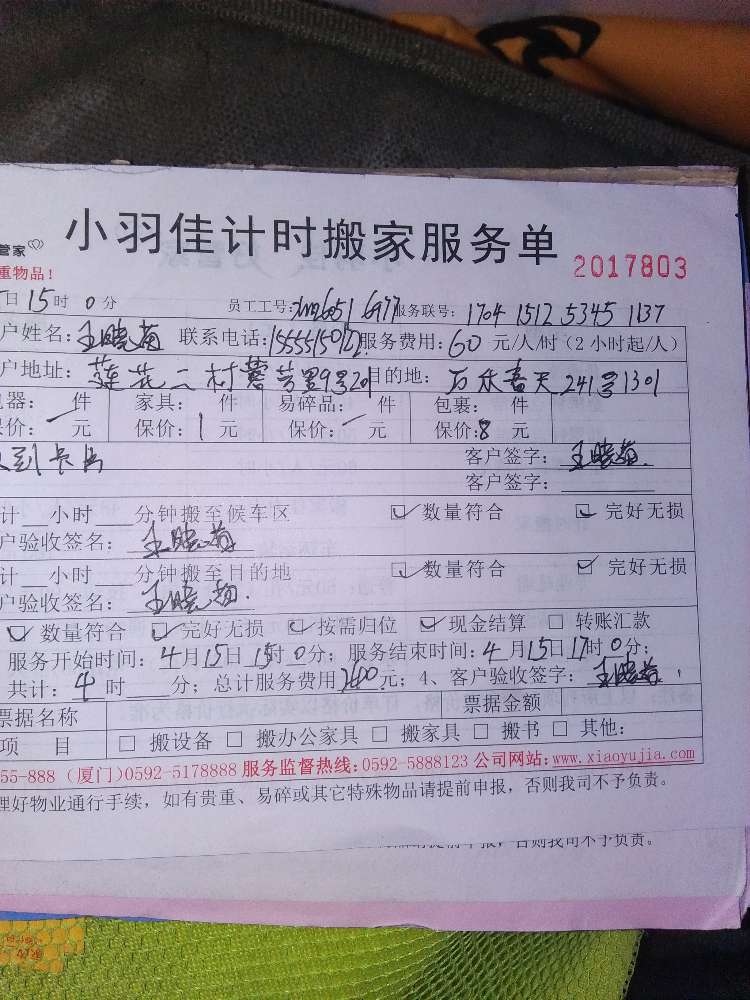 管家 小羽佳计时搬家服务单
重物品！ 2017803
日15时0分 员工工号: 服务联号: 1704 1512 5345 1137
户姓名: 王晓菊 联系电话: 服务费用: 60 元/人/时 (2小时起/人)
户地址: 莲花二村 9号201 目的地: 万禾春天241号1301
电器: 件 家具: 件 易碎品: 件 包裹: 件
保价: 一 元 保价: 1 元 保价: 一 元 保价: 8 元
客户签字: 王晓菊
客户签字:
计__小时___分钟搬至候车区 ☑数量符合 ☑完好无损
户验收签名: 王晓菊
计__小时___分钟搬至目的地 ☑数量符合 ☑完好无损
户验收签名: 王晓菊
☑数量符合 ☑完好无损 ☑按需归位 ☑现金结算 □转账汇款
服务开始时间: 4月15日15时0分; 服务结束时间: 4月15日17时0分;
共计: 4时___分; 总计服务费用240元; 4、客户验收签字: 王晓菊
票据名称 票据金额
项 目 □搬设备 □搬办公家具 □搬家具 □搬书 □其他:
55-888 (厦门)0592-5178888 服务监督热线:0592-5888123 公司网站:www.xiaoyujia.com
理好物业通行手续，如有贵重、易碎或其它特殊物品请提前申报，否则我司不予负责。
否则我司不予负责。